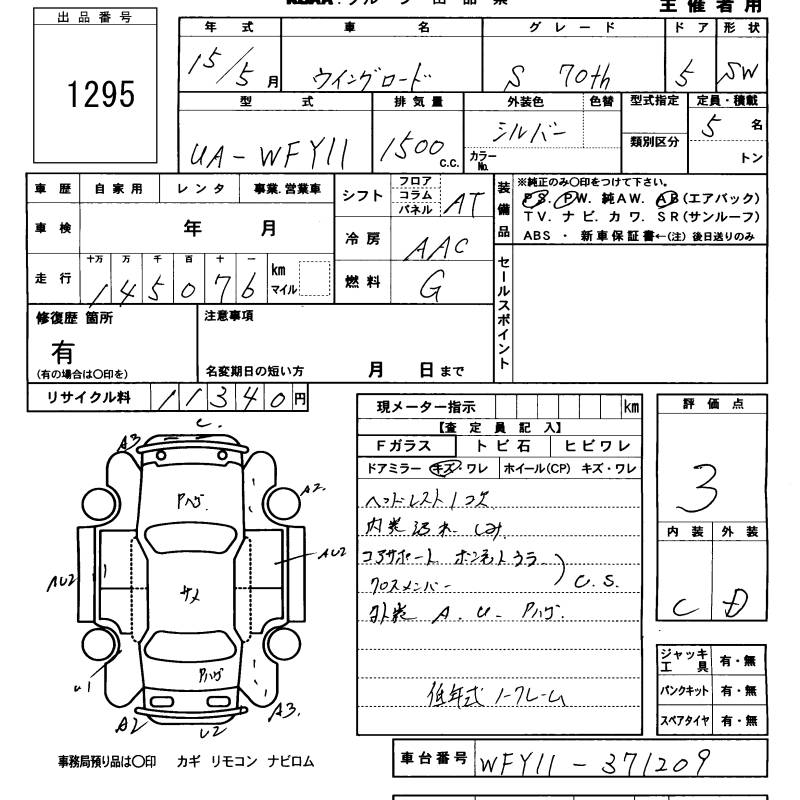 主催者用
出品番号
1295
年式 車名 グレード ドア 形状
15/5月 ウイングロード S 70th 5 SW
型式 排気量 外装色 色替 型式指定 定員・積載
UA-WFY11 1500c.c. シルバー カラーNo. 類別区分 5名
トン
車歴 自家用 レンタ 事業.営業車
車検 年 月
走行 十万 万 千 百 十 一
145076 km マイル
シフト フロア コラム パネル AT
冷房 AAC
燃料 G
装備品
※純正のみ〇印をつけて下さい。
PS. PW. 純AW. AB(エアバック)
TV. ナビ. カワ. SR(サンルーフ)
ABS ・ 新車保証書←(注) 後日送りのみ
セールスポイント
修復歴 箇所
有
(有の場合は〇印を)
注意事項
名変期日の短い方 月 日まで
リサイクル料 11340円
現メーター指示 km
【査定員記入】
Fガラス トビ石 ヒビワレ
ドアミラー キズ・ワレ ホイール(CP) キズ・ワレ
ヘッドレスト1コ欠
内装汚れ しみ
コアサポート ボンネットウラ
クロスメンバー
C.S.
外装 A.U.Pハゲ.
低年式 ノークレーム
評価点
3
内装 外装
C D
ジャッキ工具 有・無
パンクキット 有・無
スペアタイヤ 有・無
C.
A3
A2.
Pハゲ
AU2
AU2
サメ
U1
Pハゲ
A2
U2
A3.
事務局預り品は〇印 カギ リモコン ナビロム
車台番号 WFY11-371209